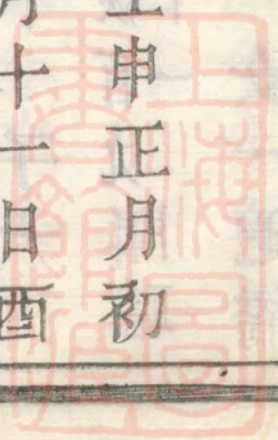 申正月初
十一日酉
上海圖
書館藏